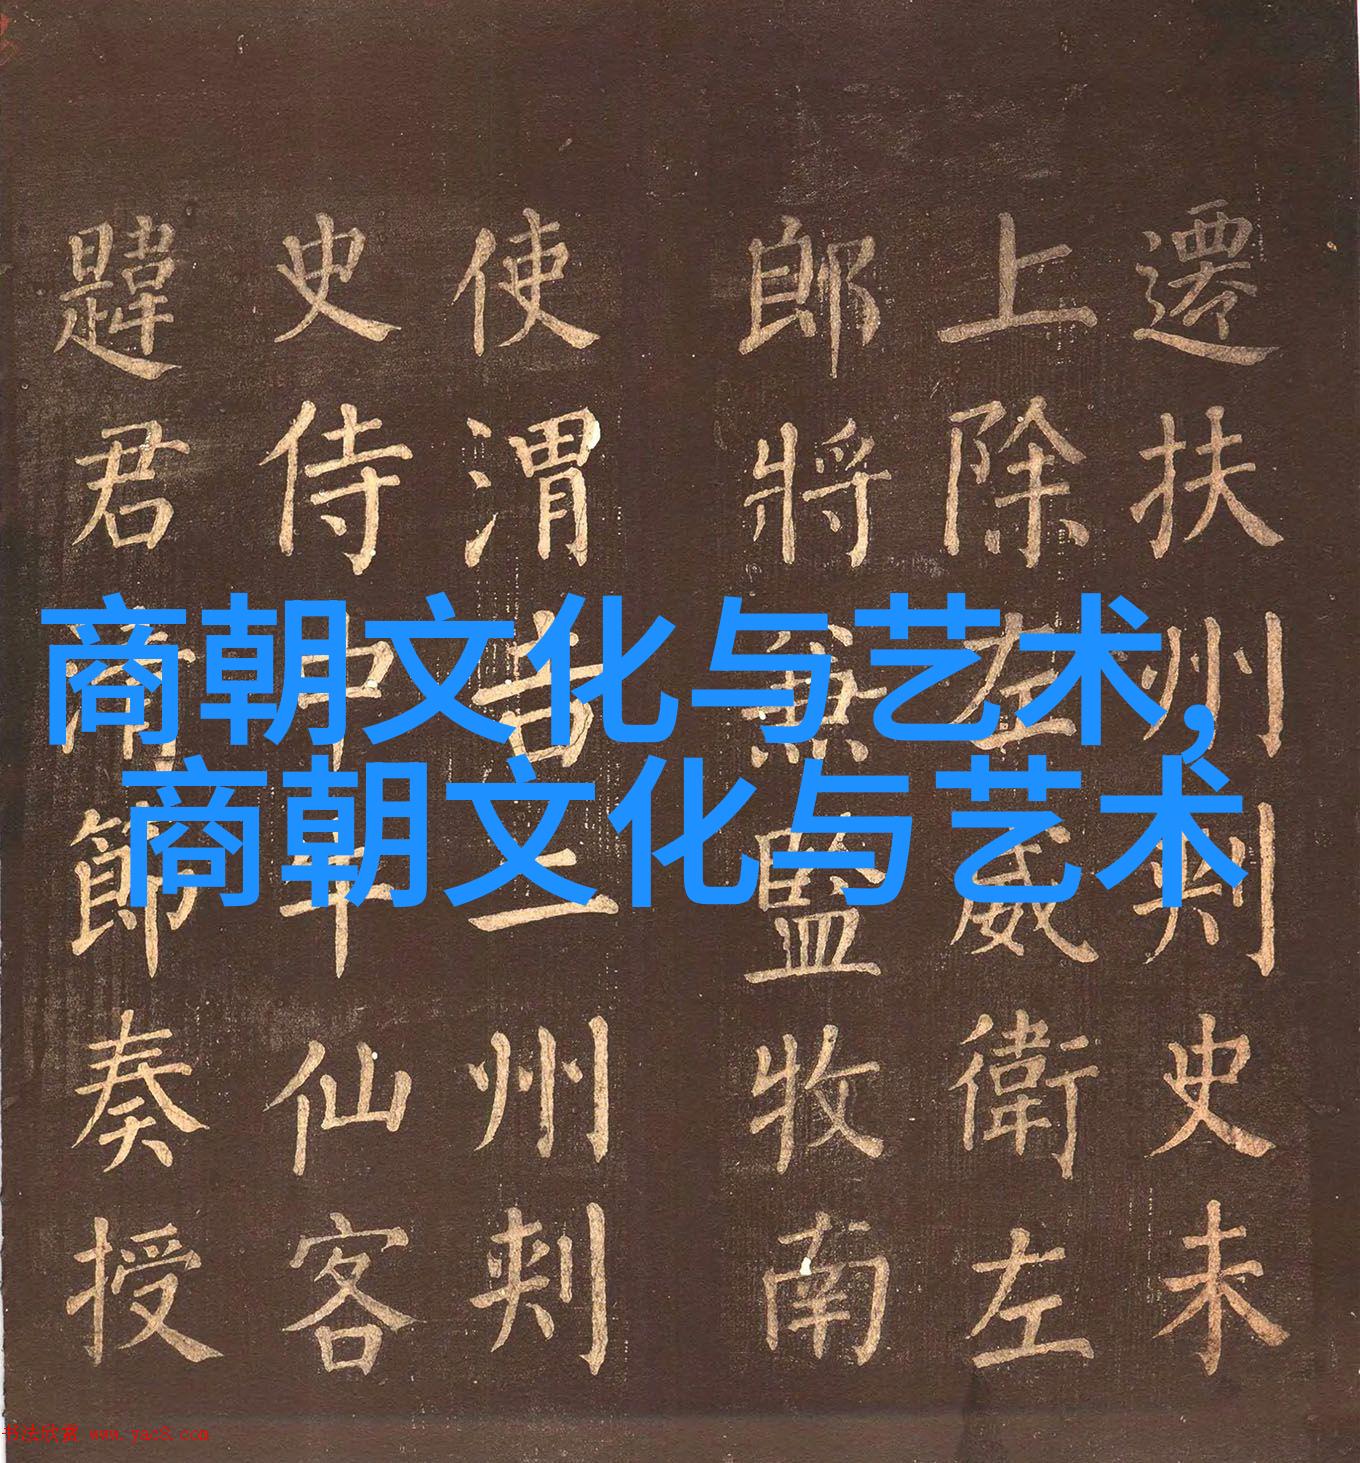 遷扶州刾史未
上除左威衛左
郎將兼監牧南
使渭吉二州刾
史侍中牛仙客
韙君清節奏授
商朝文化与艺术,
商朝文化与艺术
书法欣赏 www.yac8.com